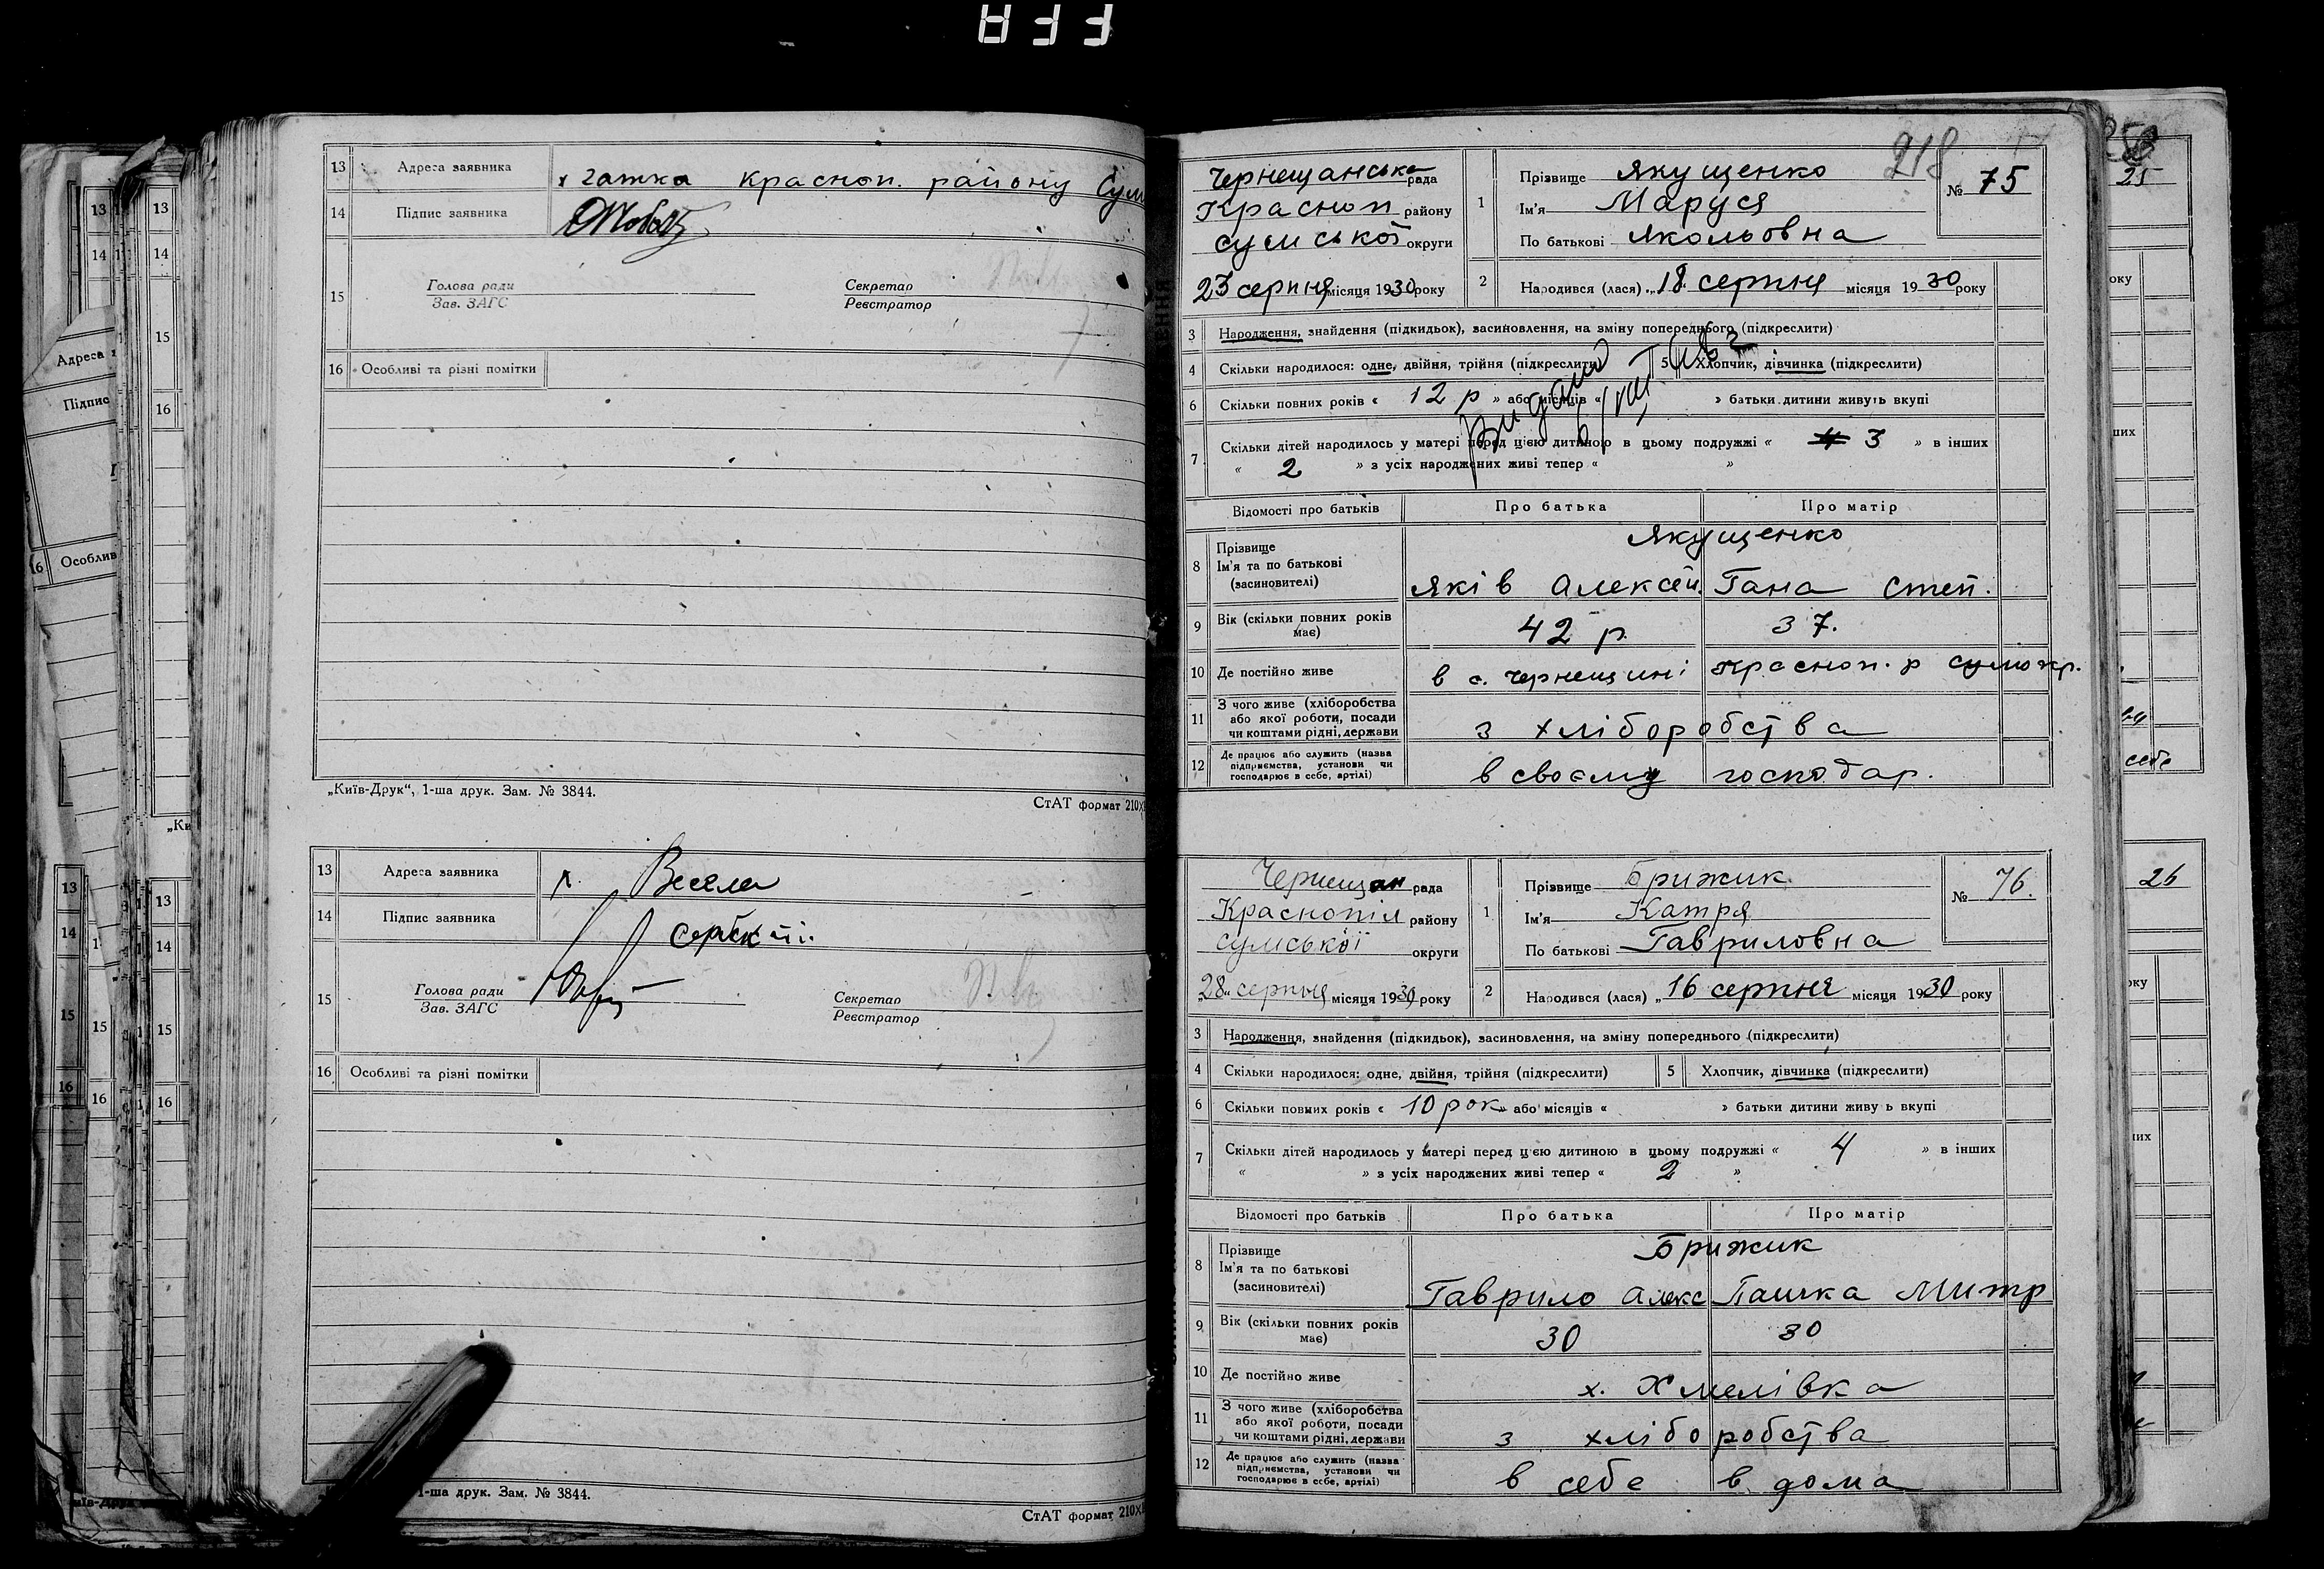 13 Адреса заявника х Гатка Красноп. району Сум
14 Підпис заявника
15 Голова ради Секретар
Зав. ЗАГС Реєстратор
16 Особливі та різні помітки
„Київ-Друк“, 1-ша друк. Зам. № 3844.
СтАТ формат 210Х
13 Адреса заявника х. Весела
14 Підпис заявника
15 Голова ради Секретар
Зав. ЗАГС Реєстратор
16 Особливі та різні помітки
1-ша друк. Зам. № 3844.
СтАТ формат 210Х
218
Чернещанська рада
Красноп району
Сумської округи
23 серпня місяця 1930 року
1 Прізвище Якущенко
Ім'я Маруся
По батькові Якольовна
№ 75
2 Народився (лася) „18 серпня місяця 1930 року
3 Народження, знайдення (підкидьок), засиновлення, на зміну попереднього (підкреслити)
4 Скільки народилося: одне, двійня, трійня (підкреслити) 5 Хлопчик, дівчинка (підкреслити)
6 Скільки повних років « 12 р » або місяців « » батьки дитини живуть вкупі
7 Скільки дітей народилось у матері перед цією дитиною в цьому подружжі « 4 3 » в інших
« 2 » з усіх народжених живі тепер « »
Видано
Відомості про батьків Про батька Про матір
8 Прізвище
Ім'я та по батькові
(засиновителі)
Якущенко
Яків Алексей. Гана Степ.
9 Вік (скільки повних років має) 42 р. 37.
10 Де постійно живе в с. Чернещині Красноп. р Сум окр.
11 З чого живе (хліборобства
або якої роботи, посади
чи коштами рідні, держави
з хліборобства
12 Де працює або служить (назва
підприємства, установи чи
господарює в себе, артілі)
в своєму господар.
Чернещан рада
Краснопіл району
Сумської округи
„28„ серпня місяця 1930 року
1 Прізвище Брижик
Ім'я Катря
По батькові Гавриловна
№ 76.
2 Народився (лася) „16 серпня місяця 1930 року
3 Народження, знайдення (підкидьок), засиновлення, на зміну попереднього (підкреслити)
4 Скільки народилося: одне, двійня, трійня (підкреслити) 5 Хлопчик, дівчинка (підкреслити)
6 Скільки повних років « 10 рок » або місяців « » батьки дитини живу ь вкупі
7 Скільки дітей народилось у матері перед цією дитиною в цьому подружжі « 4 » в інших
« » з усіх народжених живі тепер « 2 »
Відомості про батьків Про батька Про матір
8 Прізвище
Ім'я та по батькові
(засиновителі)
Брижик
Гаврило Алекс Пашка Митр
9 Вік (скільки повних років має) 30 30
10 Де постійно живе х. Хмелівка
11 З чого живе (хліборобства
або якої роботи, посади
чи коштами рідні, держави
з хліборобства
12 Де працює або служить (назва
підприємства, установи чи
господарює в себе, артілі)
в себе в дома
25
26